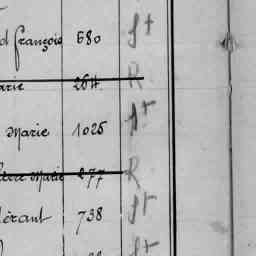 d françois 680 St
arie 264 R
Marie 1026 St
ierre Marie 277 R
érant 738 St
St